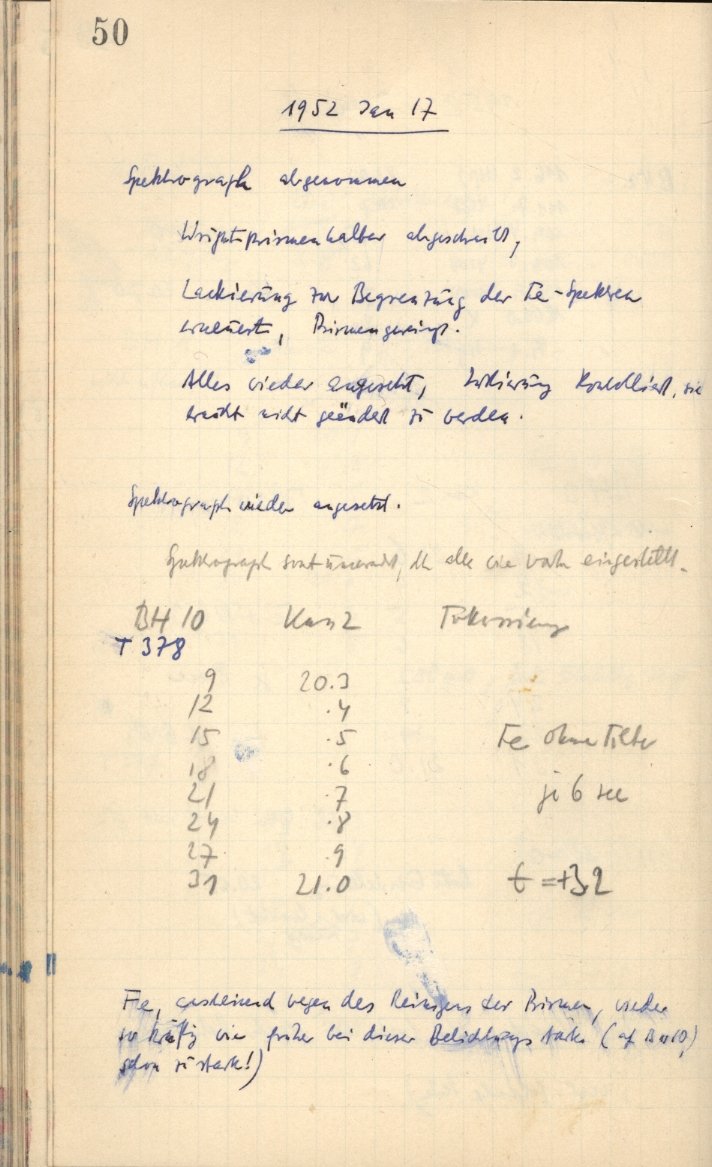 50
1952 Jan 17
Spektrograph abgenommen
abgeschraubt,
Lackierung zur Begrenzung der Fe-Spektren
erneuert, Prismen gereinigt.
Alles wieder angesetzt, Justierung kontrolliert, sie
braucht nicht geändert zu werden.
Spektrograph wieder angesetzt.
Spektrograph sonst unverändert, dh alles wie vorher eingestellt.
BH 10 Kam 2 Fokussierung
T 378
9 20.3
12 .4
15 .5 Fe ohne Filter
18 .6
21 .7 je 6 sec
24 .8
27 .9
31 21.0 t = +3,2
Fe, anscheinend wegen des Reinigens der Prismen, wieder
so kräftig wie früher bei dieser Belichtungsstärke (auf
schon zu stark!)